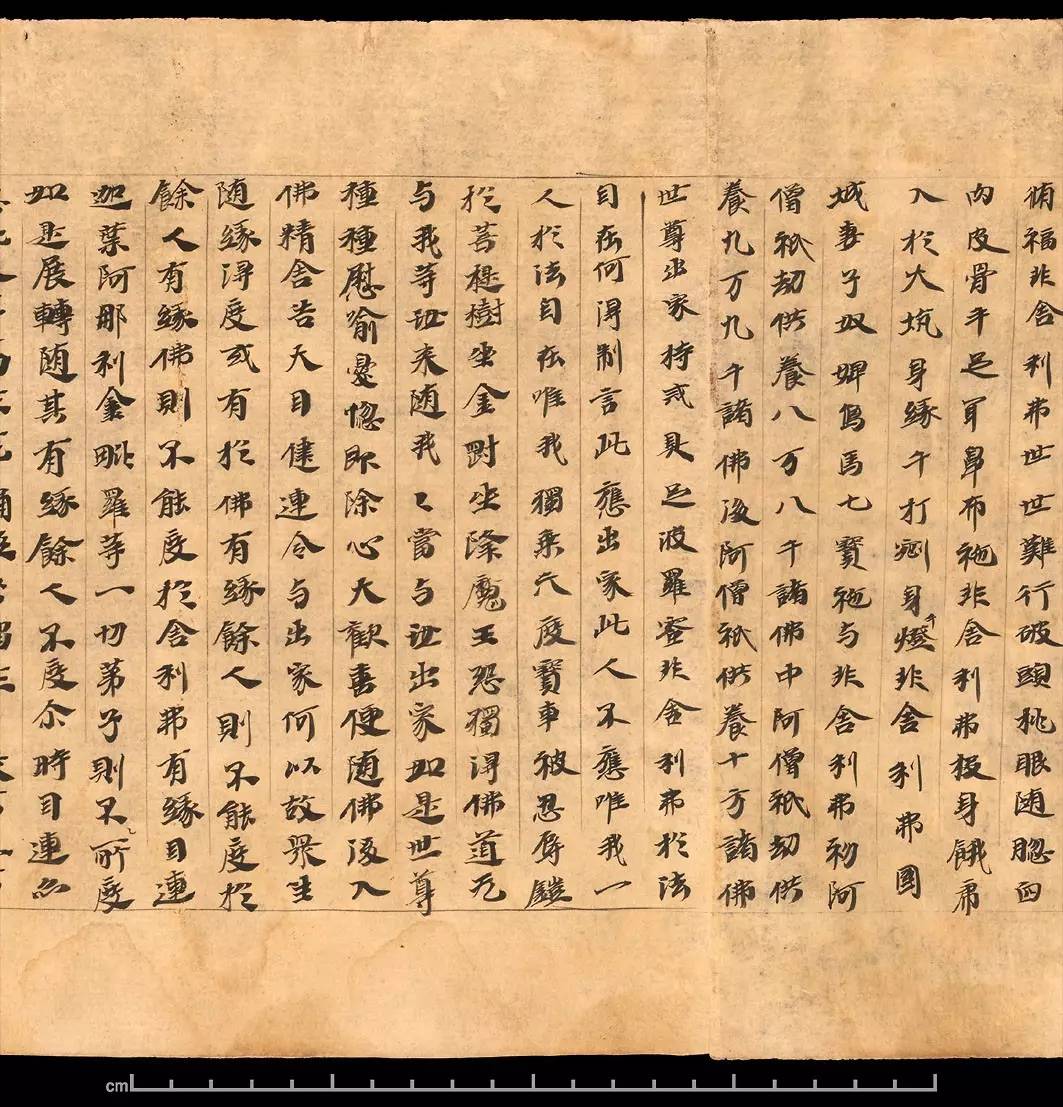 脩福非舍利弗世世難行破頭挑眼随脳血
肉皮骨手足耳鼻布施非舍利弗投身餓虎
入於火坑身緣千打剜身千燈非舍利弗國
城妻子奴婢象馬七寳施与非舍利弗初阿
僧祇劫供養八万八千諸佛中阿僧祇劫供
養九万九千諸佛後阿僧祇供養十方諸佛
世尊出家持戒具足波羅蜜非舍利弗於法
自在何得制言此應出家此人不應唯我一
人於法自在唯我獨乘六度寳車被忍辱鎧
於菩提樹坐金剛坐降魔王怨獨得佛道无
与我等汝来随我々當与汝出家如是世尊
種種慰喻憂惱即除心大歡喜便随佛後入
佛精舍告大目犍連令与出家何以故衆生
随緣得度或有於佛有緣餘人則不能度於
餘人有緣佛則不能度於舍利弗有緣目連
迦葉阿那利金毗羅等一切弟子則不所度
如是展轉随其有緣餘人不度尒時目連亦
cm